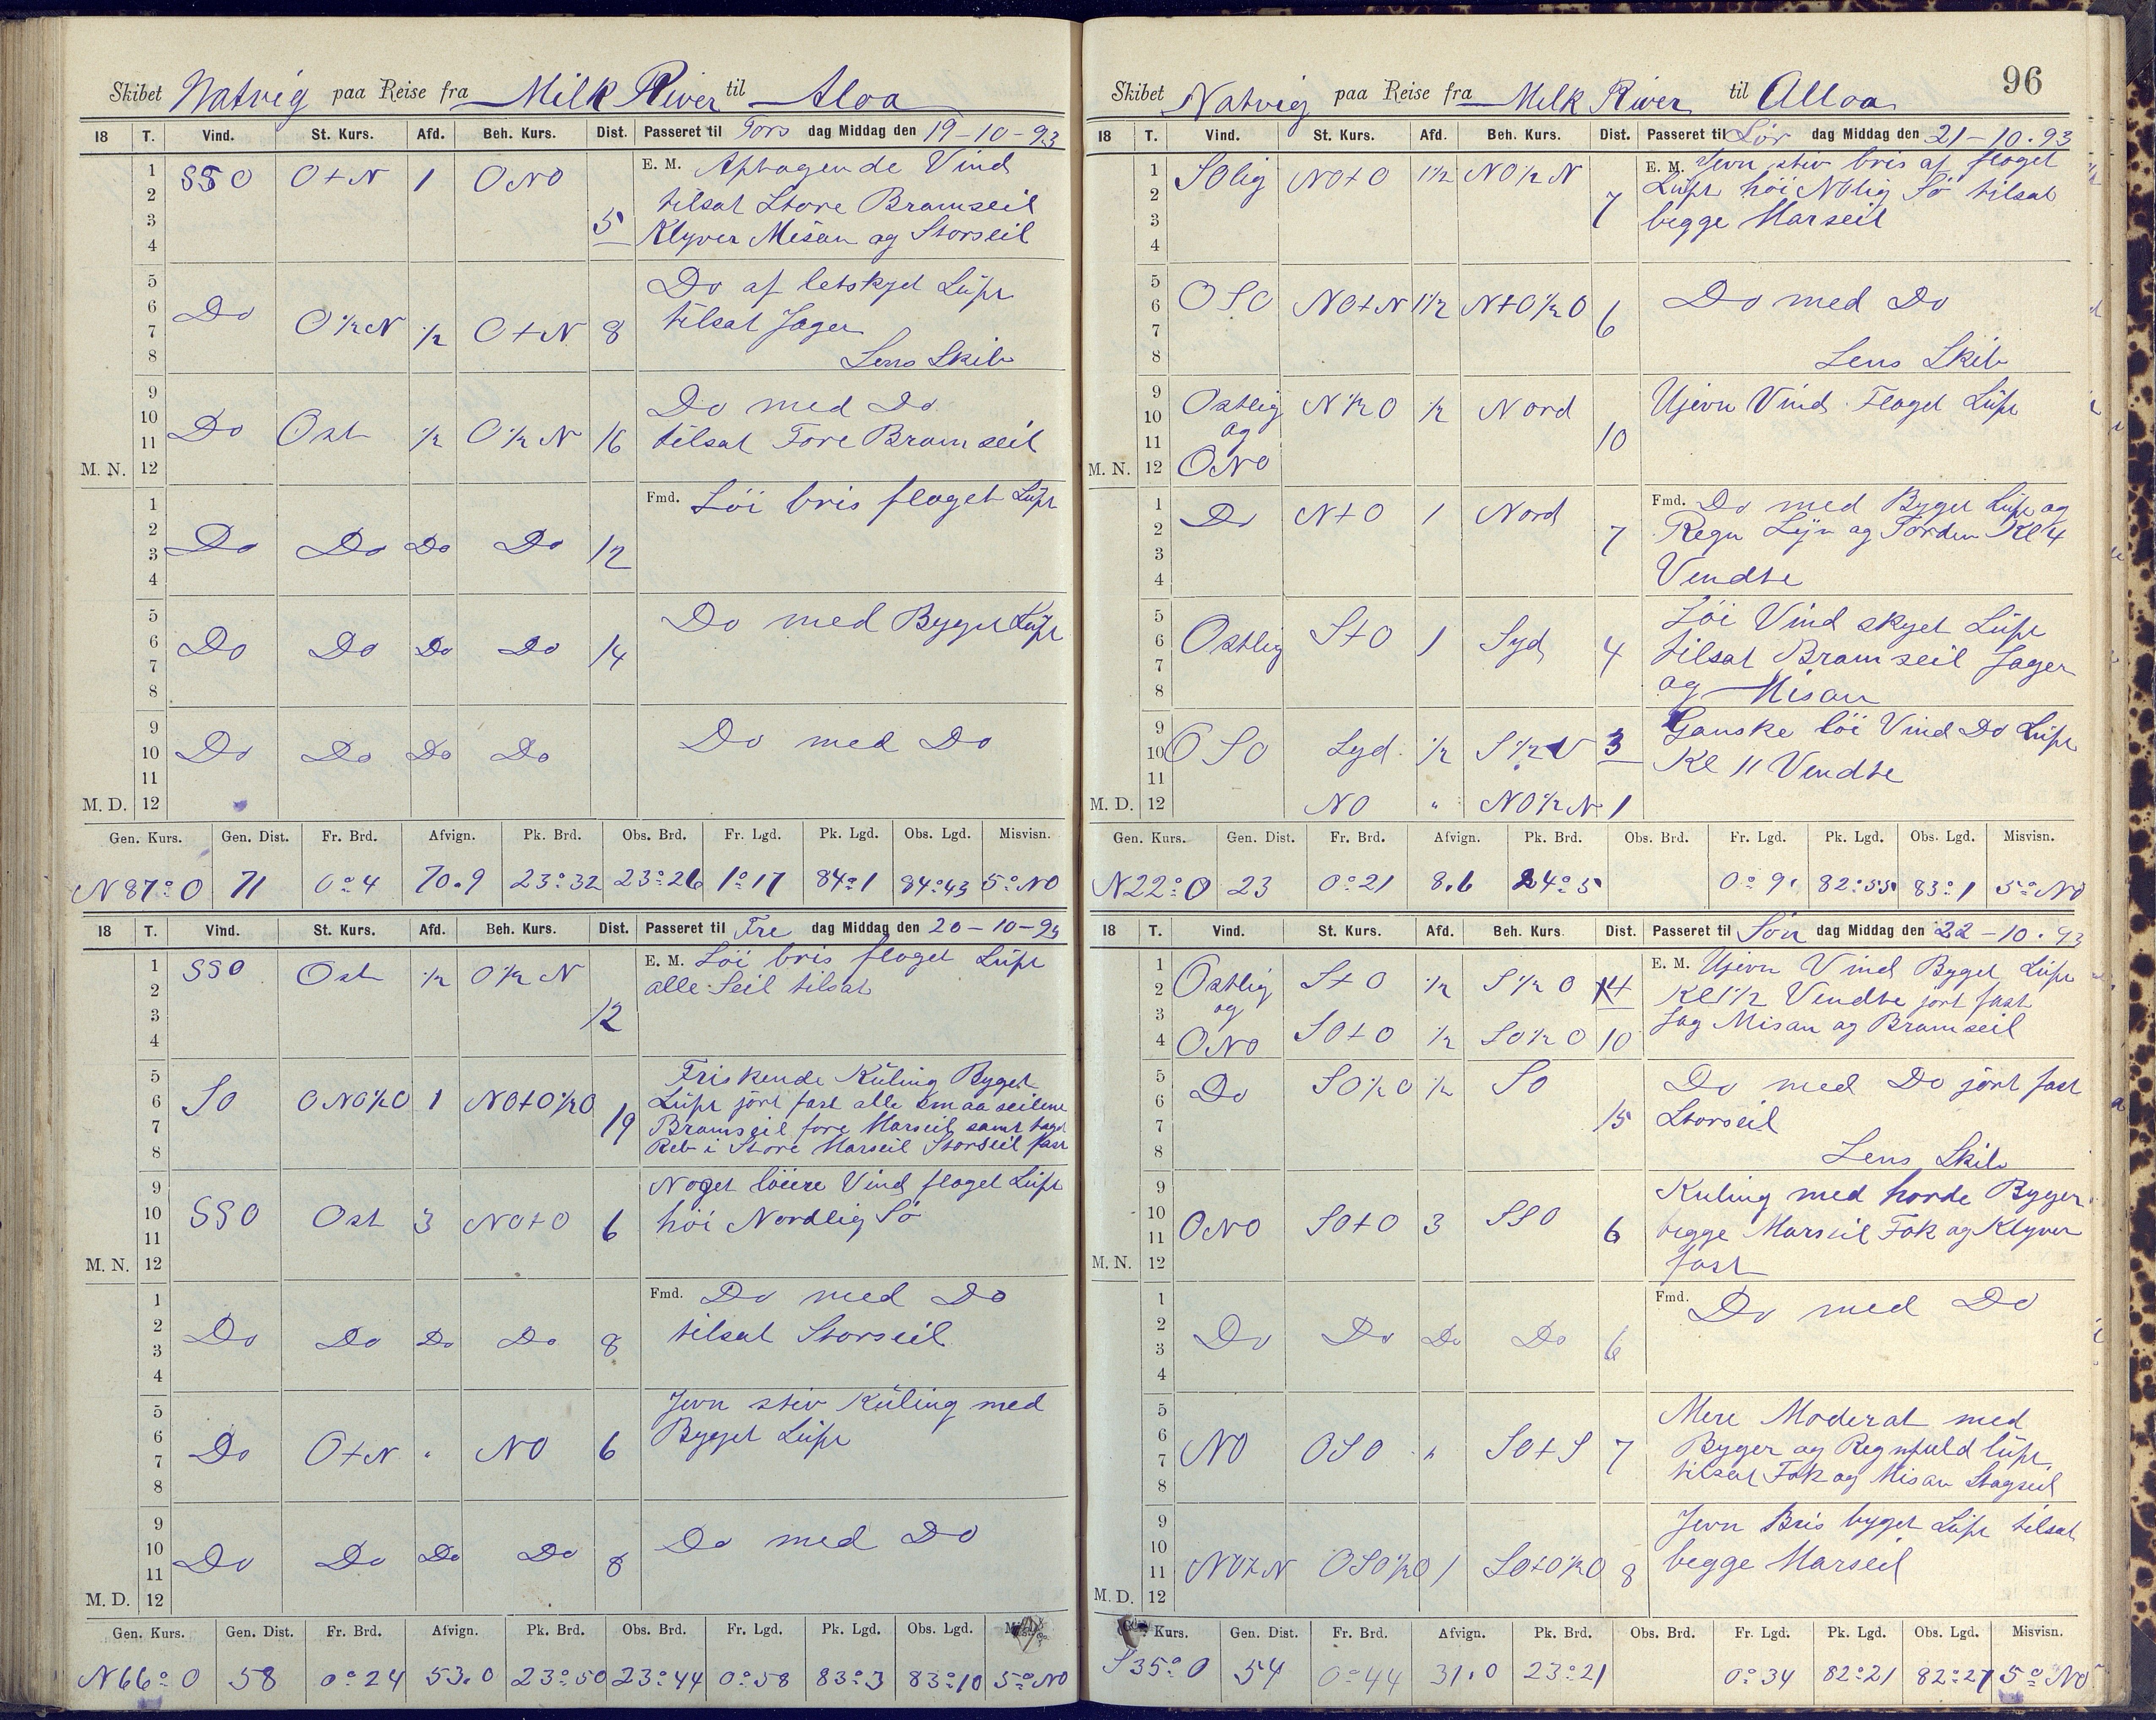 Skibet Natvig paa Reise fra Milk River til Aloa
18 T. Vind. St. Kurs. Afd. Beh. Kurs. Dist. Passeret til Tors dag Middag den 19-10-93
1 2 3 4 SSO O+N 1 ONO 5 E. M. Aftagende Vind
tilsat Store Bramseil
Klyver Misan og Storseil
5 6 7 8 Do O½N ½ O+N 8 Do af letskyet Luft
tilsat Jager
Lens Skib
9 10 11 Do Ost ½ O½N 16 Do med Do
tilsat Fore Bramseil
M. N. 12
1 2 3 4 Do Do Do Do 12 Fmd. Löi bris flaget Luft
5 6 7 8 Do Do Do Do 14 Do med Byget Luft
9 10 11 Do Do Do Do Do med Do
M. D. 12
Gen. Kurs. Gen. Dist. Fr. Brd. Afvign. Pk. Brd. Obs. Brd. Fr. Lgd. Pk. Lgd. Obs. Lgd. Misvisn.
N87°O 71 0°4 70.9 23°32 23°26 1°17 84°1 84°43 5°NO
18 T. Vind. St. Kurs. Afd. Beh. Kurs. Dist. Passeret til Fre dag Middag den 20-10-93
1 2 3 4 SSO Ost ½ O½N 12 E. M. Löi bris flaget Luft
alle Seil tilsat
5 6 7 8 SO ONO½O 1 NO+O½O 19 Friskende Kuling Byget
Luft jört fast alle smaaseilene
Bramseil fore Marseil samt taget
Reb i Store Marseil Storseil fast
9 10 11 SSO Ost 3 NO+O 6 Noget löiere Vind flaget Luft
höi Nordlig Sö
M. N. 12
1 2 3 4 Do Do Do Do 8 Fmd. Do med Do
tilsat Storseil
5 6 7 8 Do O+N " NO 6 Jevn stiv Kuling med
Byget Luft
9 10 11 Do Do Do Do 8 Do med Do
M. D. 12
Gen. Kurs. Gen. Dist. Fr. Brd. Afvign. Pk. Brd. Obs. Brd. Fr. Lgd. Pk. Lgd. Obs. Lgd.
N66°O 58 0°24 53.0 23°50 23°44 0°58 83°3 83°10 5°NO
96
Skibet Natvig paa Reise fra Milk River til Alloa
18 T. Vind. St. Kurs. Afd. Beh. Kurs. Dist. Passeret til Lör dag Middag den 21-10.93
1 2 3 4 SOlig NO+O 1½ NO½N 7 E. M. Jevn stiv bris af flaget
Luft höi NOlig Sö tilsat
begge Marseil
5 6 7 8 OSO NO+N 1½ N+O½O 6 Do med Do
Lens Skib
9 10 11 Ostlig og ONO N½O ½ Nord 10 Ujevn Vind Flaget Luft
M. N. 12
1 2 3 4 Do N+O 1 Nord 7 Fmd. Do med Byget Luft og
Regn Lyn og Torden Kl 4
Vendte
5 6 7 8 Ostlig S+O 1 Syd 4 Löi Vind skyet Luft
tilsat Bramseil Jager
og Misan
9 10 11 OSO Syd ½ S½V 3 Ganske löi Vind Do Luft
Kl 11 Vendte
M. D. 12 NO " NO½N 1
Gen. Kurs. Gen. Dist. Fr. Brd. Afvign. Pk. Brd. Obs. Brd. Fr. Lgd. Pk. Lgd. Obs. Lgd. Misvisn.
N22°O 23 0°21 8.6 24°5 0°9 82°55 83°1 5°NO
18 T. Vind. St. Kurs. Afd. Beh. Kurs. Dist. Passeret til Sön dag Middag den 22-10.93
1 2 3 4 Ostlig og ONO S+O ½ S½O 4 E. M. Ujevn Vind Byget Luft
Kl 1½ Vendte jört fast
SO+O ½ SO½O 10 Jag Misan og Bramseil
5 6 7 8 Do SO½O ½ SO 15 Do med Do jört fast
Storseil
Lens Skib
9 10 11 ONO SO+O 3 SSO 6 Kuling med horde Byger
begge Marseil Fok og Klyver
fast
M. N. 12
1 2 3 4 Do Do Do Do 6 Fmd. Do med Do
5 6 7 8 NO OSO " SO+S 7 Mere Moderat med
Byger og Regnfuld luft
tilsat Fok og Misan Stagseil
9 10 11 NO+N OSO½O 1 SO+O½O 8 Jevn Bris byget Luft tilsat
begge Marseil
M. D. 12
Kurs. Gen. Dist. Fr. Brd. Afvign. Pk. Brd. Obs. Brd. Fr. Lgd. Pk. Lgd. Obs. Lgd. Misvisn.
S35°O 54 0°44 31.0 23°21 0°34 82°21 82°27 5°NO